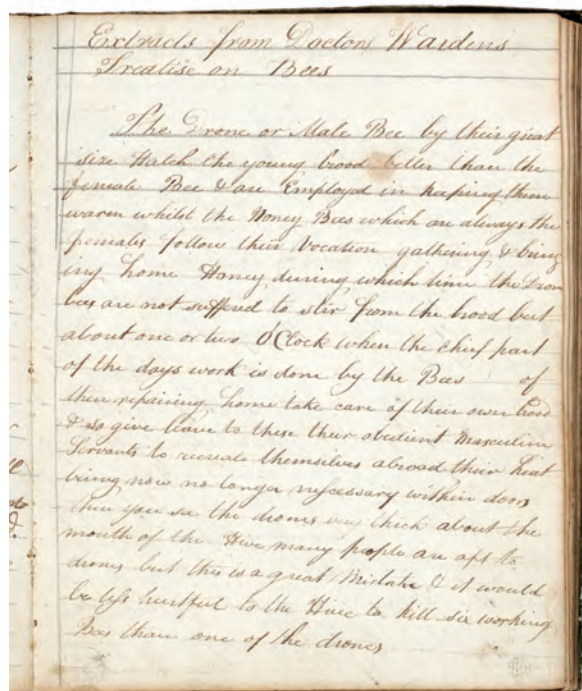 Extracts from Doctors Wardens
Treatise on Bees
The Drone or Male Bee by their great
size Hatch the young brood better than the
female Bee & are Employed in keeping them
warm whilst the Honey Bees which are always the
females follow their Vocation gathering & bring
ing home Honey during which time the Dron
bees are not suffered to stir from the brood but
about one or two O'Clock when the chief part
of the days work is done by the Bees of
then repairing home take care of their own brood
& so give leave to these their obedient Masculine
Servants to recreate themselves abroad their heat
being now no longer nefsessary within doors
then you see the drones very thick about the
mouth of the Hive many people are apt to
drones but this is a great Mistake & it would
be lefs hurtful to the Hive to kill six working
Bees than one of the drones